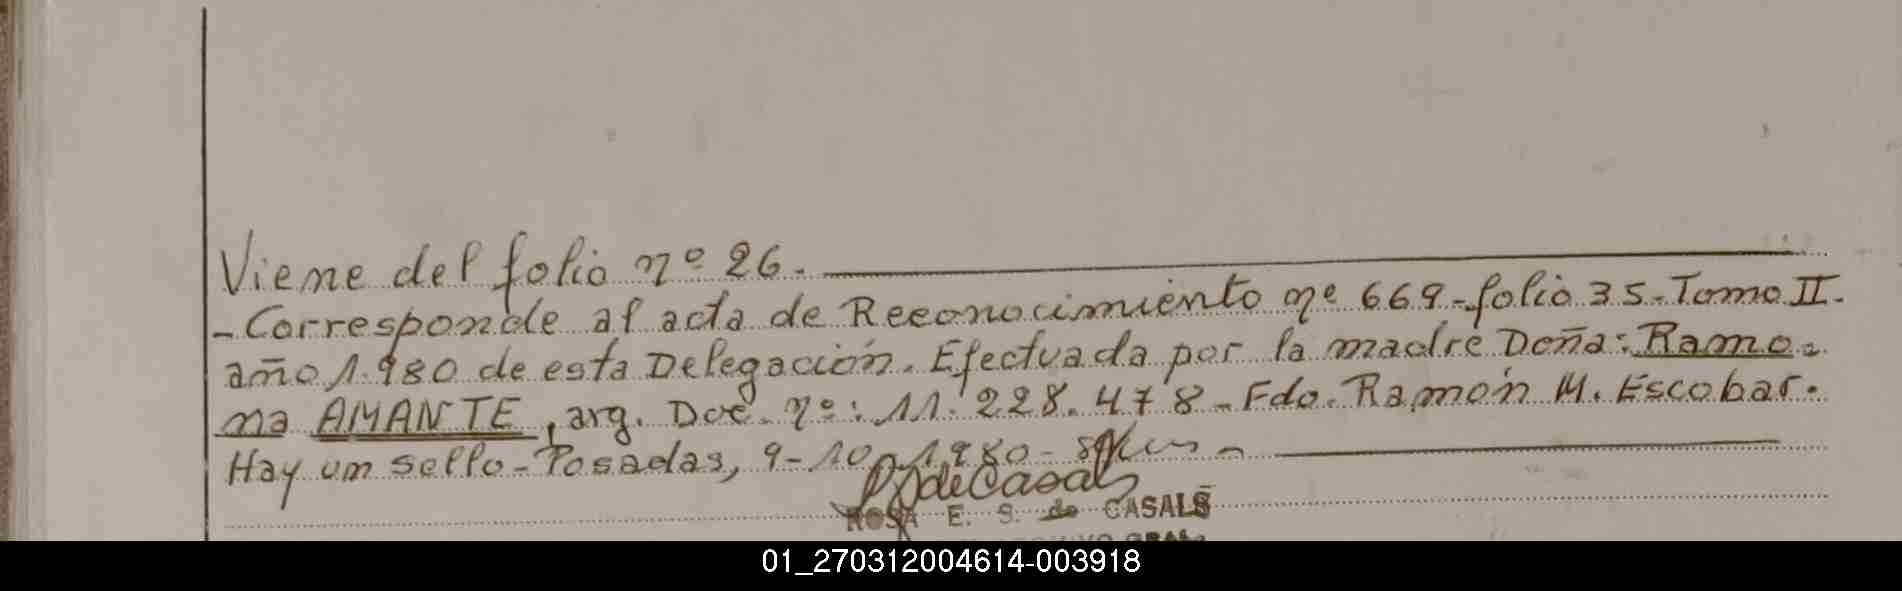 Viene del folio nº 26.
- Corresponde al acta de Reconocimiento nº 669 - folio 35 - Tomo II -
año 1.980 de esta Delegación. Efectuada por la madre Doña: Ramo-
na AMANTE, arg. Doc. nº: 11.228.478 - Fdo. Ramón M. Escobar.
Hay un sello - Posadas, 9-10-1980 -
de Casals
ROSA E. S. de CASALS
GRAL.
01_270312004614-003918